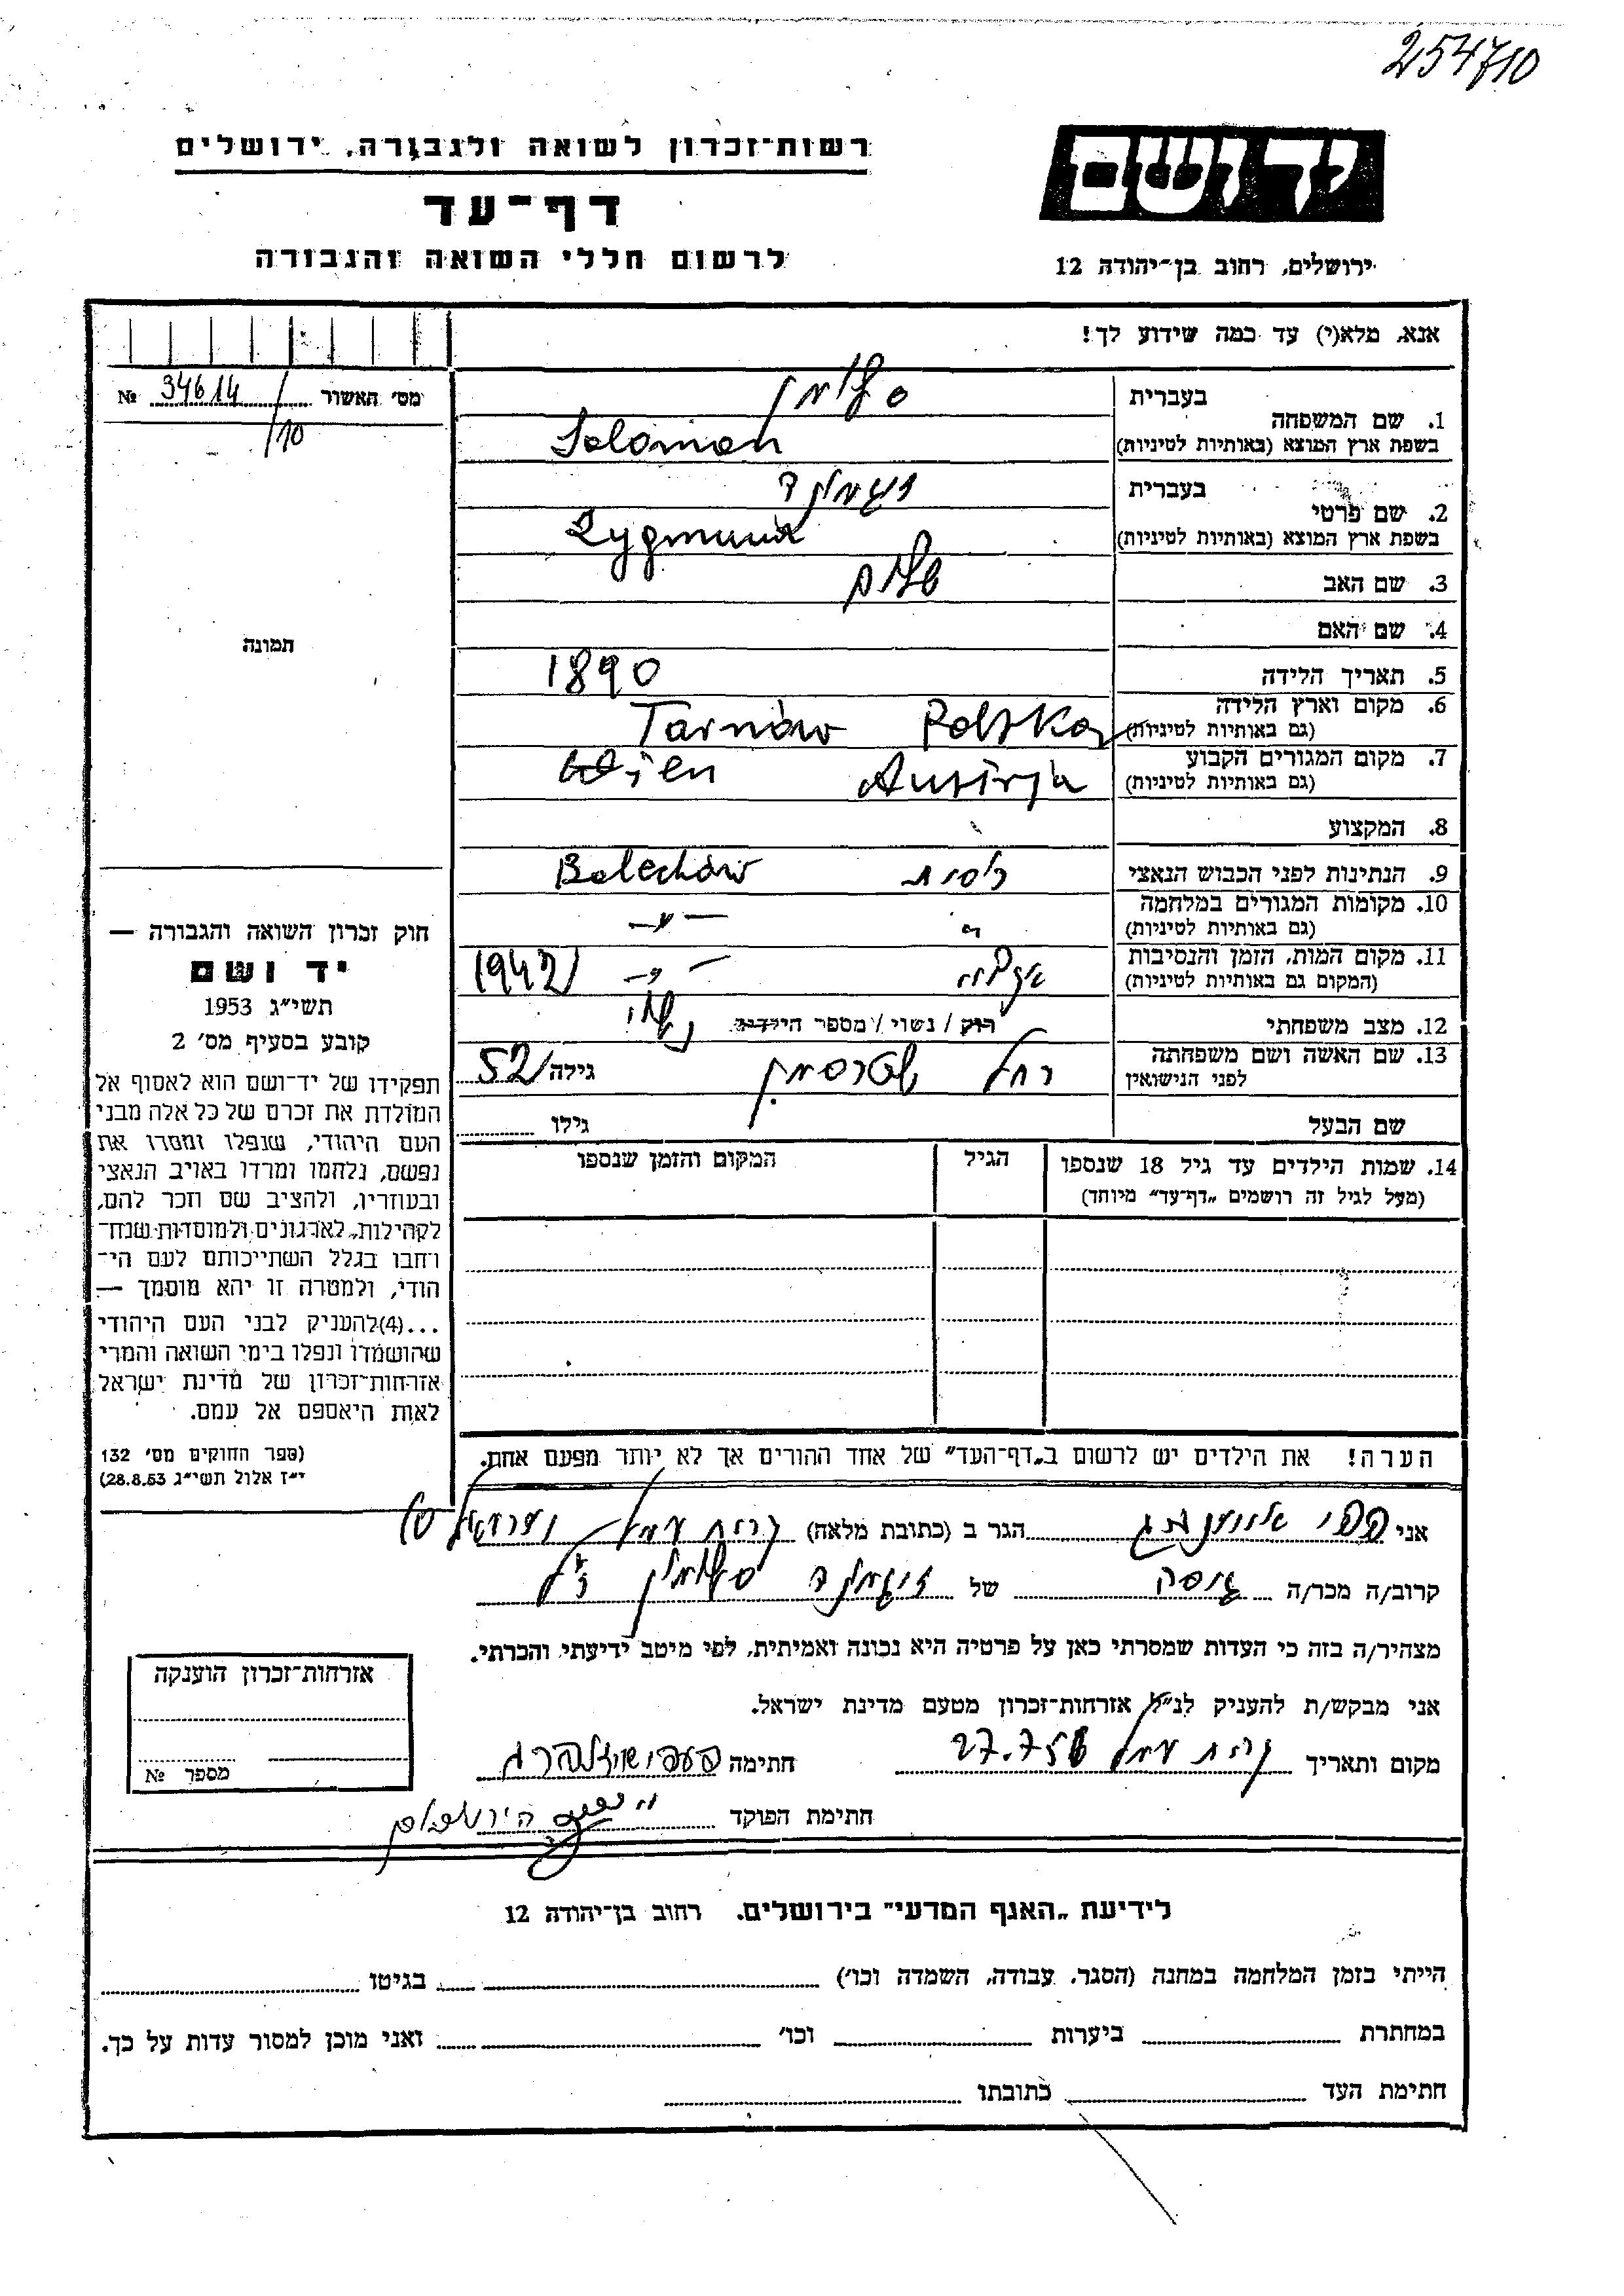 254710
רשות־זכרון לשואה ולגבורה, ירושלים
דף־עד
לרשום חללי השואה והגבורה
יד ושם
ירושלים, רחוב בן־יהודה 12
אנא, מלא(י) עד כמה שידוע לך!
מס׳ תאשור 34614 №
/10
תמונה
1. שם המשפחה
בעברית סלומון
בשפת ארץ המוצא (באותיות לטיניות) Solomon
2. שם פרטי
בעברית זיגמונד
בשפת ארץ המוצא (באותיות לטיניות) Zygmund
3. שם האב שלום
4. שם האם
5. תאריך הלידה 1890
6. מקום וארץ הלידה (גם באותיות לטיניות) Tarnów Polska
7. מקום המגורים הקבוע (גם באותיות לטיניות) Wien Austrja
8. המקצוע
9. הנתינות לפני הכבוש הנאצי Bolechów
10. מקומות המגורים במלחמה (גם באותיות לטיניות)
11. מקום המות, הזמן והנסיבות (המקום גם באותיות לטיניות) 1942
12. מצב משפחתי רוק / נשוי / מספר הילדים נשוי
13. שם האשה ושם משפחתה לפני הנישואין רחל גילה 52
שם הבעל גילו
14. שמות הילדים עד גיל 18 שנספו הגיל המקום והזמן שנספו
(מעל לגיל זה רושמים „דף־עד״ מיוחד)
חוק זכרון השואה והגבורה —
יד ושם
תשי״ג 1953
קובע בסעיף מס׳ 2
תפקידו של יד־ושם הוא לאסוף אל
המולדת את זכרם של כל אלה מבני
העם היהודי, שנפלו ומסרו את
נפשם, נלחמו ומרדו באויב הנאצי
ובעוזריו, ולהציב שם וזכר להם,
לקהילות, לארגונים ולמוסדות שנח־
רבו בגלל השתייכותם לעם הי־
הודי, ולמטרה זו יהא מוסמך —
...(4)להעניק לבני העם היהודי
שהושמדו ונפלו בימי השואה והמרי
אזרחות־זכרון של מדינת ישראל
לאות היאספם אל עמם.
(ספר החוקים מס׳ 132
י״ז אלול תשי״ג 28.8.53)
הערה! את הילדים יש לרשום ב„דף־העד״ של אחד ההורים אך לא יותר מפעם אחת.
אני הגר ב (כתובת מלאה) קרית עמל
קרוב/ה מכר/ה גיסה של זיגמונד סלומון ז״ל
מצהיר/ה בזה כי העדות שמסרתי כאן על פרטיה היא נכונה ואמיתית, לפי מיטב ידיעתי והכרתי.
אני מבקש/ת להעניק לנ״ל אזרחות־זכרון מטעם מדינת ישראל.
מקום ותאריך קרית עמל 27.7.56 חתימה
חתימת הפוקד
אזרחות־זכרון הוענקה
מספר №
לידיעת „האגף המדעי״ בירושלים. רחוב בן־יהודה 12
הייתי בזמן המלחמה במחנה (הסגר, עבודה, השמדה וכו׳) בגיטו
במחתרת ביערות וכו׳ ואני מוכן למסור עדות על כך.
חתימת העד כתובתו